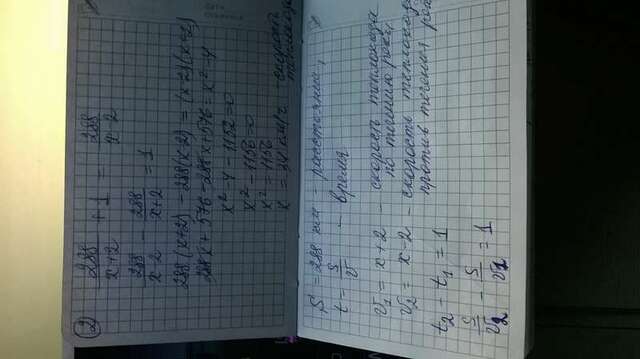 2) 288/(x+2) + 1 = 288/(x-2)
288/(x-2) - 288/(x+2) = 1
288(x+2) - 288(x-2) = (x-2)(x+2)
288x + 576 - 288x + 576 = x² - 4
x² - 4 - 1152 = 0
x² - 1156 = 0
x² = 1156
x = 34 км/ч - скорость
теплохода
S = 288 км - расстояние,
t = S/v - время
v₁ = x+2 - скорость теплохода
по течению реки
v₂ = x-2 - скорость теплохода
против течения реки
t₂ - t₁ = 1
S/v₂ - S/v₁ = 1